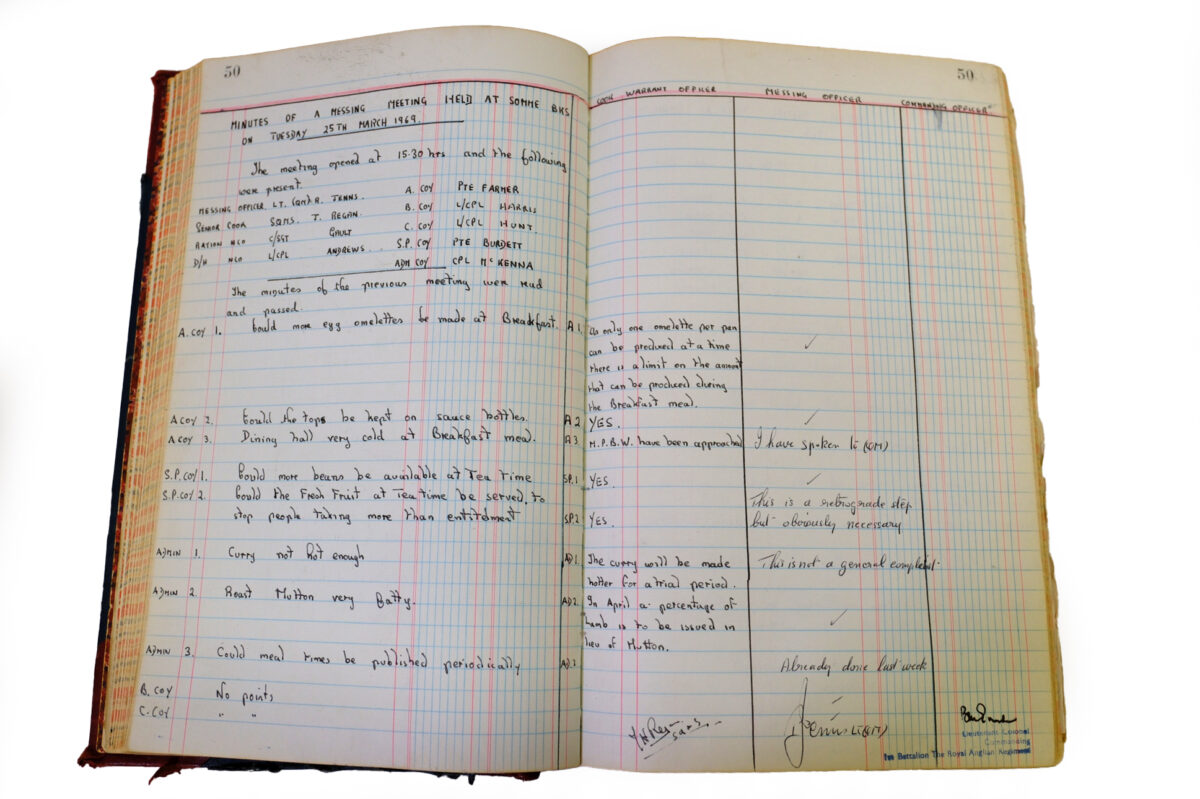 50
MINUTES OF A MESSING MEETING HELD AT SOMME BKS
ON TUESDAY 25TH MARCH 1969.
The meeting opened at 15·30 hrs and the following
were present.
MESSING OFFICER LT. (QM) R. JENNS. A. COY PTE FARMER
SENIOR COOK SQMS. T. REGAN. B. COY L/CPL HARRIS
RATION NCO C/SGT GAULT C. COY L/CPL HUNT
D/H NCO L/CPL ANDREWS. S.P. COY PTE BURDETT
ADM COY CPL McKENNA
The minutes of the previous meeting were read
and passed.
A. COY 1. Could more egg omelettes be made at Breakfast.
A COY 2. Could the tops be kept on sauce bottles.
A COY 3. Dining hall very cold at Breakfast meal.
S.P. COY 1. Could more beans be available at Tea time
S.P. COY 2. Could the Fresh Fruit at Tea time be served, to
stop people taking more than entitelment
ADMIN 1. Curry not hot enough
ADMIN 2. Roast Mutton very Fatty.
ADMIN 3. Could meal times be published periodically
B. COY No points
C. COY " "
50
COOK WARRANT OFFICER MESSING OFFICER COMMANDING OFFICER
A 1. As only one omelette per pan
can be produced at a time
there is a limit on the amount
that can be produced during
the Breakfast meal.
A 2 YES.
A 3 M.P.B.W. have been approached I have spoken Lt (QM)
SP.1 YES
SP.2 YES. This is a retrograde step
but obviously necessary
AD1. The curry will be made This is not a general complaint.
hotter for a trial period.
AD2. In April a percentage of
Lamb is to be issued in
lieu of Mutton.
AD.3 Already done last week
SQMS.
Jenns Lt (QM)
Lieutenant Colonel
Commanding
1st Battalion The Royal Anglian Regiment